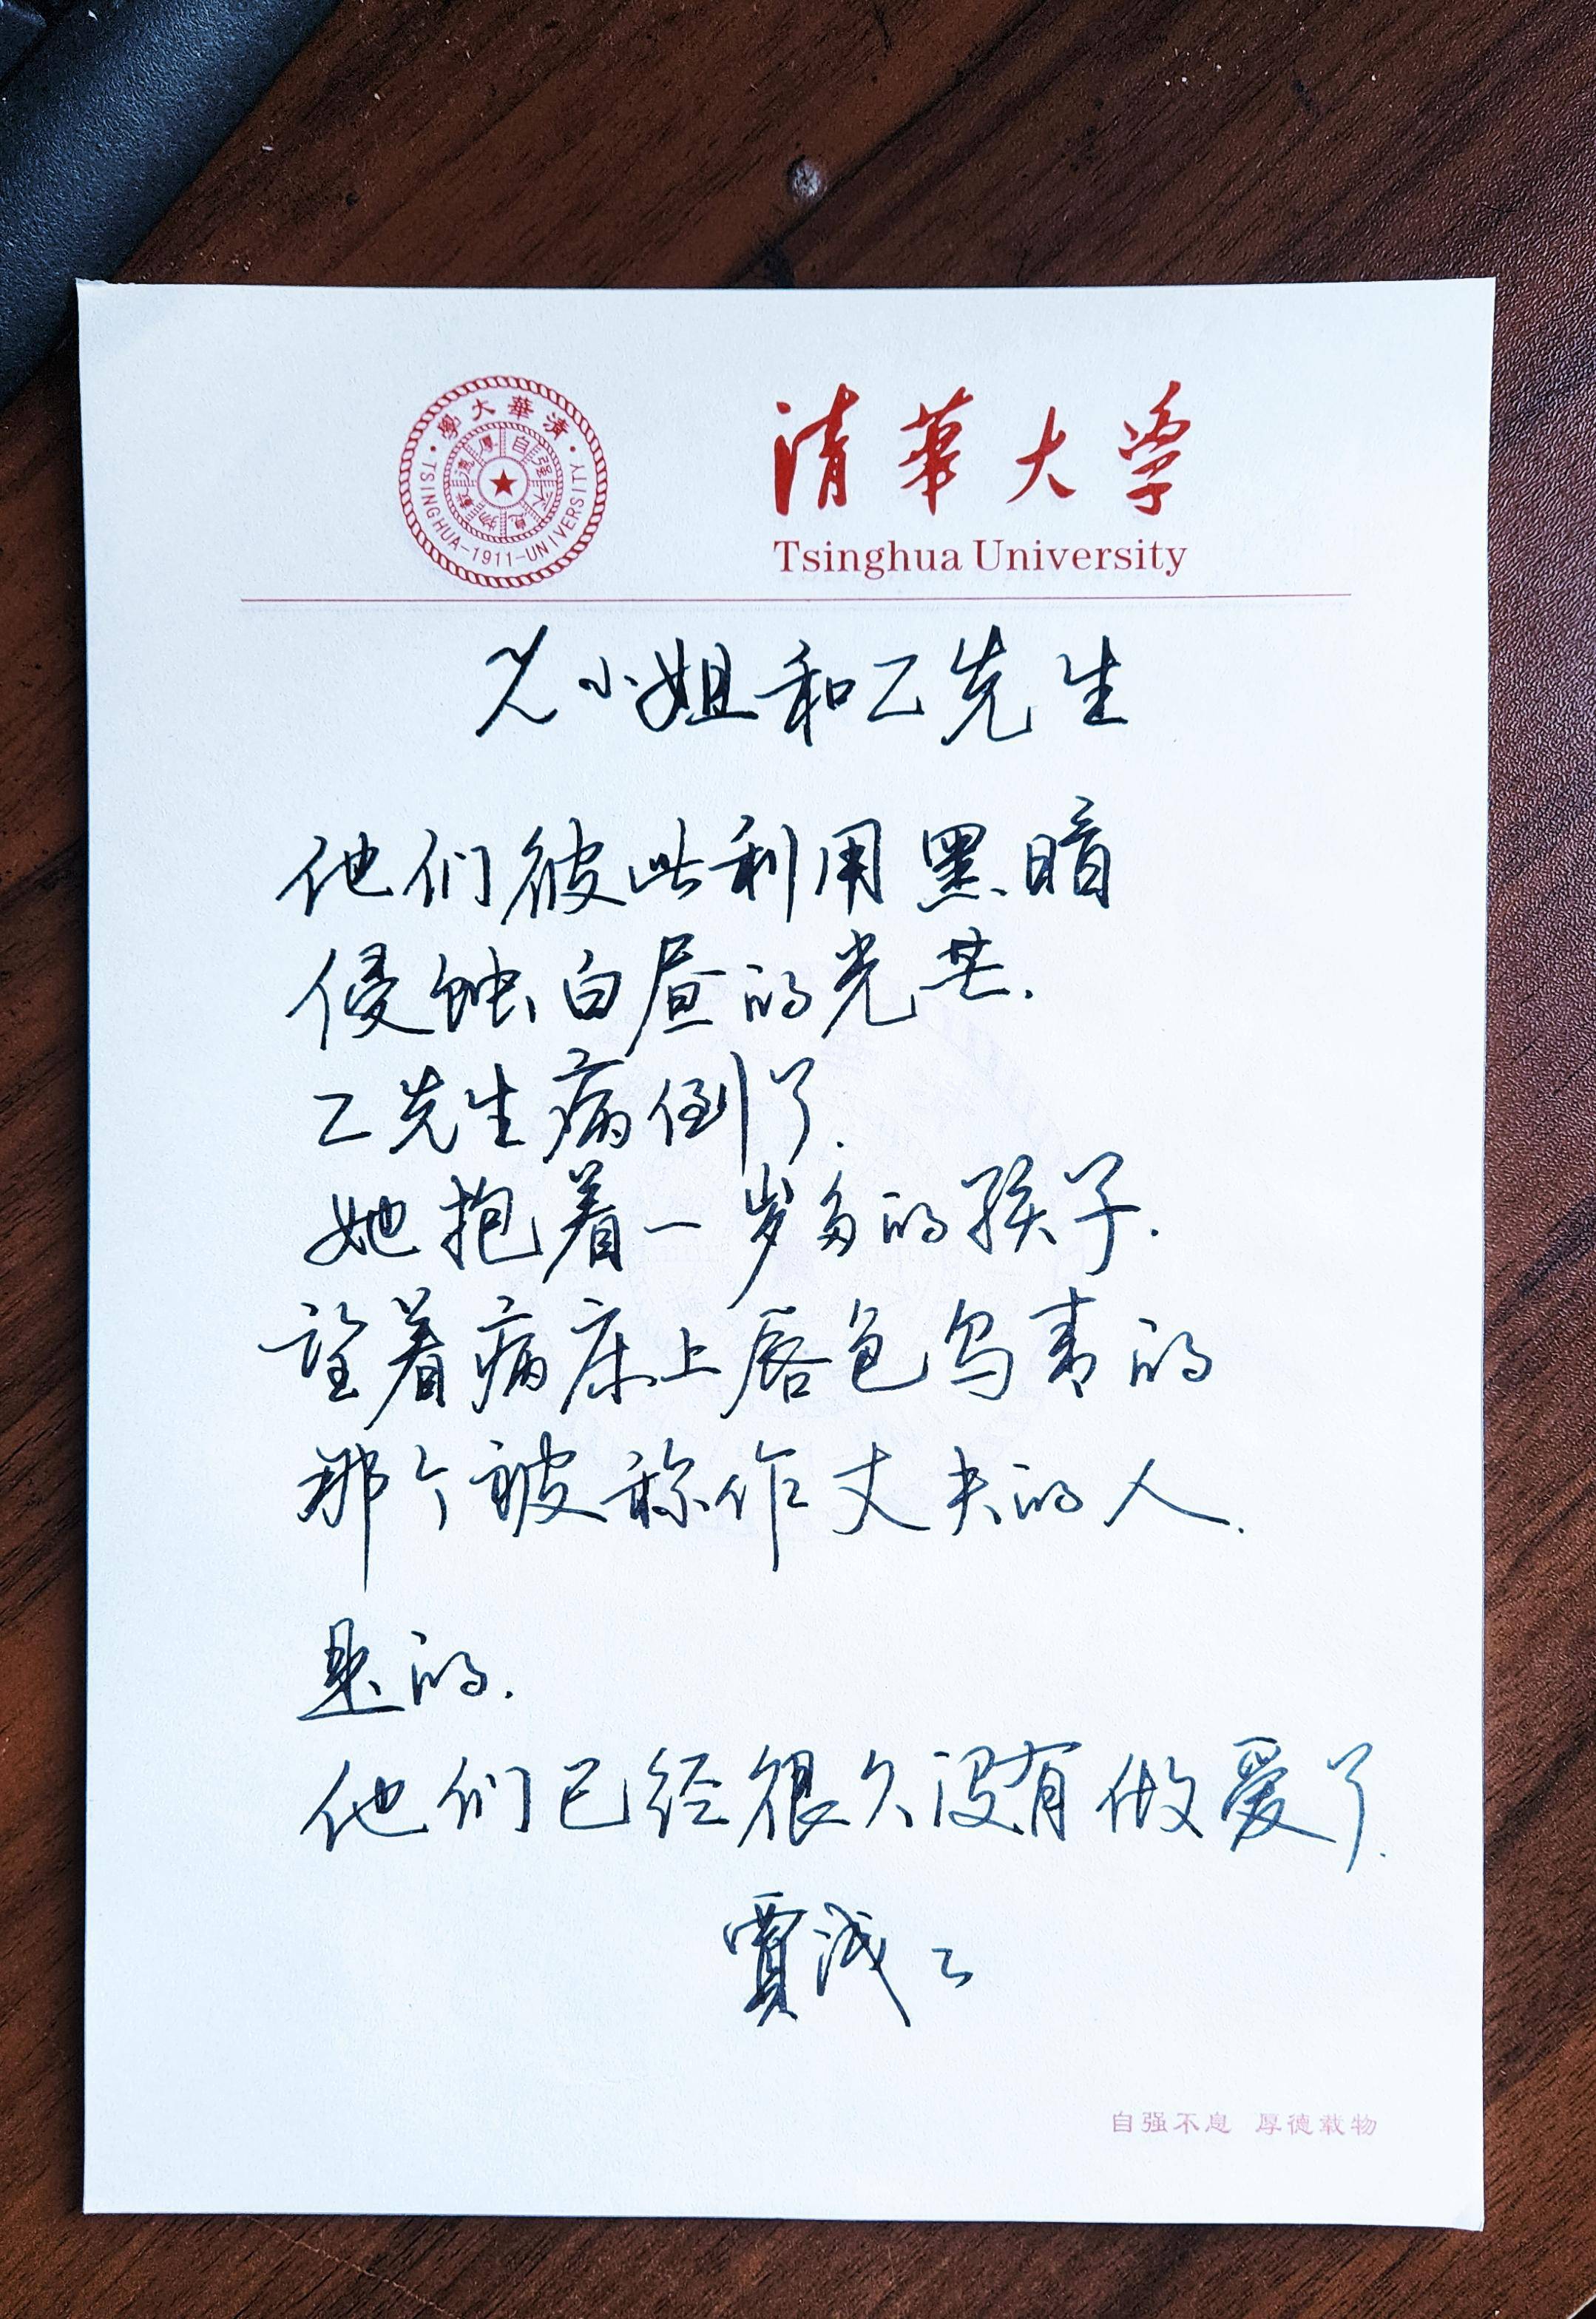 清華大學
TSINGHUA-1911-UNIVERSITY
自强不息 厚德載物
清华大学
Tsinghua University
小姐和乙先生
他们彼此利用黑暗
侵蚀白昼的光芒.
乙先生病倒了.
她抱着一岁多的孩子.
望着病床上唇色乌青的
那个被称作丈夫的人.
是的.
他们已经很久没有做爱了.
賈浅之
自强不息 厚德载物